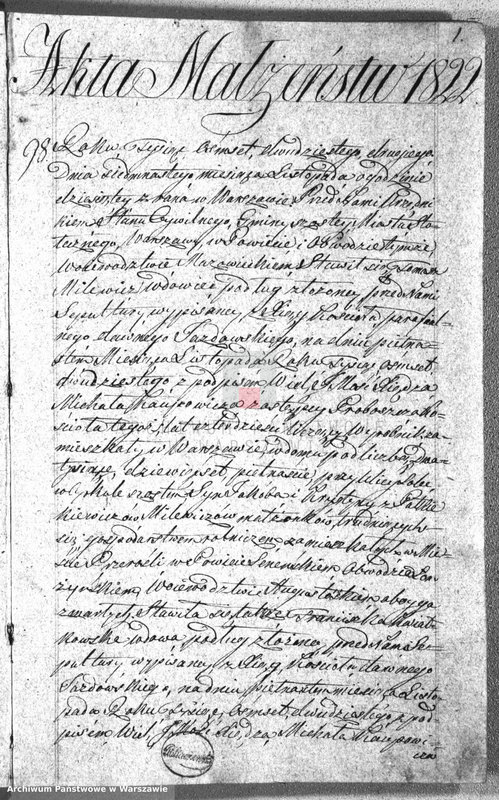 1.
Akta Małżeństw 1822
98. Roku Tysiąc Osmset, dwudziestego, drugiego
Dnia Siedmnastego miesiąca Listopada o godzinie
dziewiątey z rana w Warszawie Przed Nami Urzędni
kiem Stanu Cywilnego, Gminy szostey Miasta Sto
łecznego Warszawy, w Powiecie i Obwodzie tymże,
Woiewodztwie Mazowieckiem Stawił się Tomasz
Milewicz wdowiec podług złożoney przed Nami
Sepultury wypisaney z Xięgi Kościoła parafial=
nego dawnego Jazdowskiego, na dniu piętna=
stem Miesiąca Listopada Roku Tysiąc osmset,
dwudziestego z podpisem Wiel: J Mości Xiędza
Michała Karpowicza zastępcy Proboszcza ko=
ścioła tegoż, lat czterdzieści liczący Wyrobnik za
mieszkały w Warszawie w domu pod liczbą dwa
tysiące, dziewięcset piętnaście, przy Ulicy Solec
w Cyrkule szostem Syn Jakoba i Krystyny z
Milewiczow małżonkow, trudniących
się gospodarstwem rolniczem zamieszkałych w Mie=
ście Przerośli w Powiecie Seyneńskiem Obwodzie
Woiewodztwie Augustowskiem oboyga
zmarłych. Stawiła się także Franciszka Kwiat
kowska wdowa podług złożoney przed Nami Se=
pultury wypisaney z Xiąg Kościoła dawnego
Jazdowskiego, na dniu piętnastem miesiąca Listo
pada Roku Tysiąc, osmset, dwudziestego z pod=
pisem Wiel: J Mości Xiędza Michała Karpowi=
cza
Archiwum Państwowe w Warszawie